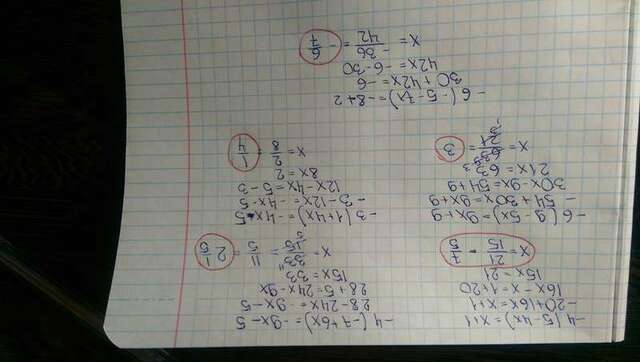 -4(5-4x)=x+1
-20+16x=x+1
16x-x=1+20
15x=21
x=21/15=7/5
-4(-7+6x)=-9x-5
28-24x=-9x-5
28+5=24x-9x
15x=33
x=33/15=11/5=2 1/5
-6(9-5x)=9x+9
-54+30x=9x+9
30x-9x=54+9
21x=63
x=63/21=3
-3(1+4x)=-4x-5
-3-12x=-4x-5
12x-4x=5-3
8x=2
x=2/8=1/4
-6(-5-7x)=-8+2
30+42x=-6
42x=-6-30
x=-36/42=-6/7